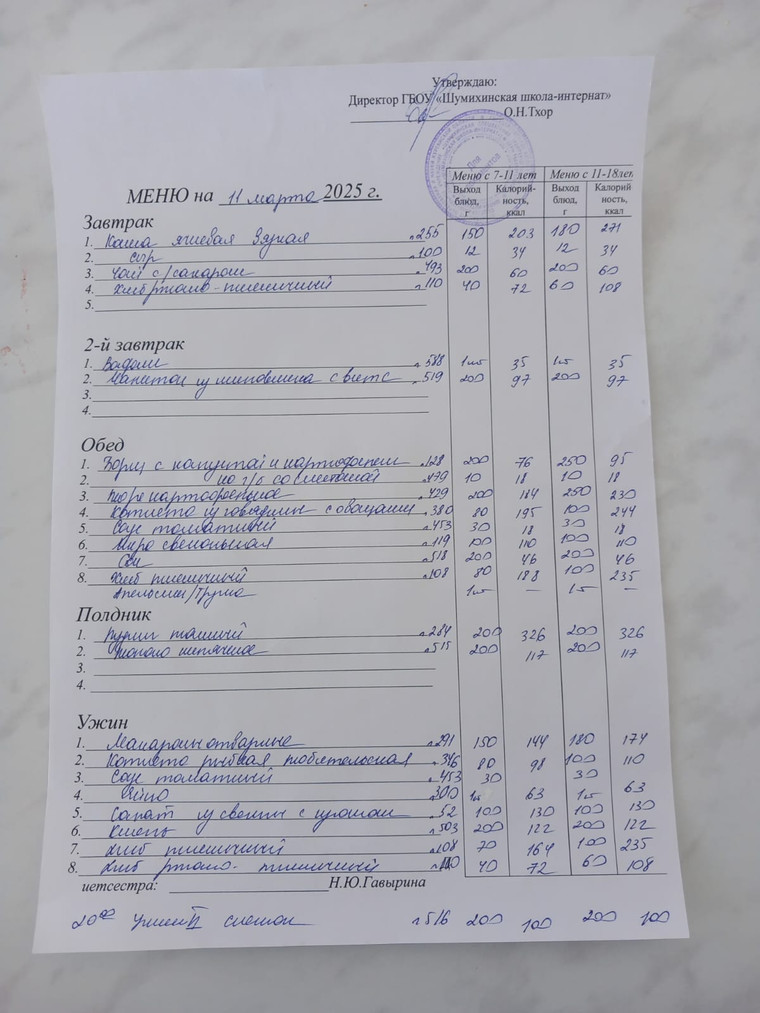 Утверждаю:
Директор ГБОУ «Шумихинская школа-интернат»
О.Н.Тхор
Меню с 7-11 лет Меню с 11-18лет
МЕНЮ на 11 марта 2025 г.
Выход блюд, г Калорий-ность, ккал Выход блюд, г Калорий ность, ккал
Завтрак
1. Каша ячневая вязкая 255 150 203 180 271
2. Сыр 100 12 34 12 34
3. Чай с/сахаром 493 200 60 200 60
4. Хлеб ржано-пшеничный 110 40 72 60 108
5.
2-й завтрак
1. 588 1шт 35 1шт 35
2. Напиток из шиповника с 519 200 97 200 97
3.
4.
Обед
1. Борщ с капустой и картофелем 128 200 76 250 95
2. на г/б со сметаной 479 10 18 10 18
3. Пюре картофельное 429 200 184 250 230
4. Котлета из говядины с овощами 380 80 195 100 244
5. Соус томатный 453 30 18 30 18
6. Икра свекольная 119 100 110 100 110
7. Сок 518 200 46 200 46
8. Хлеб пшеничный 108 80 188 100 235
Апельсин/Груша 1шт — 1шт —
Полдник
1. 284 200 326 200 326
2. Молоко кипяченое 515 200 117 200 117
3.
4.
Ужин
1. Макароны отварные 291 150 144 180 174
2. Котлета рыбная любительская 346 80 98 100 110
3. Соус томатный 453 30 30
4. Яйцо 300 1шт 63 1шт 63
5. Салат из свеклы с 52 100 130 100 130
6. Кисель 503 200 122 200 122
7. Хлеб пшеничный 108 70 164 100 235
8. Хлеб ржано-пшеничный 110 40 72 60 108
иетсестра: Н.Ю.Гавырина
20⁰⁰ Ужин II 516 200 100 200 100